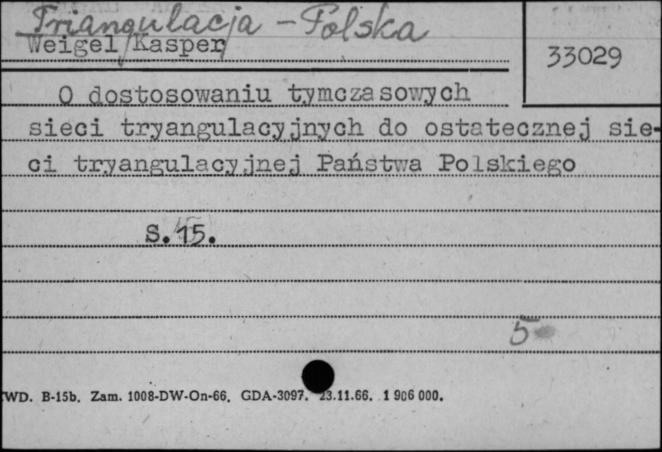 Triangulacja - Polska
Weigel/Kasper/
33029
O dostosowaniu tymczasowych
sieci tryangulacyjnych do ostatecznej sie-
ci tryangulacyjnej Państwa Polskiego
S.15.
5
WD. B-15b. Zam. 1008-DW-On-66. GDA-3097. 23.11.66. 1 906 000.